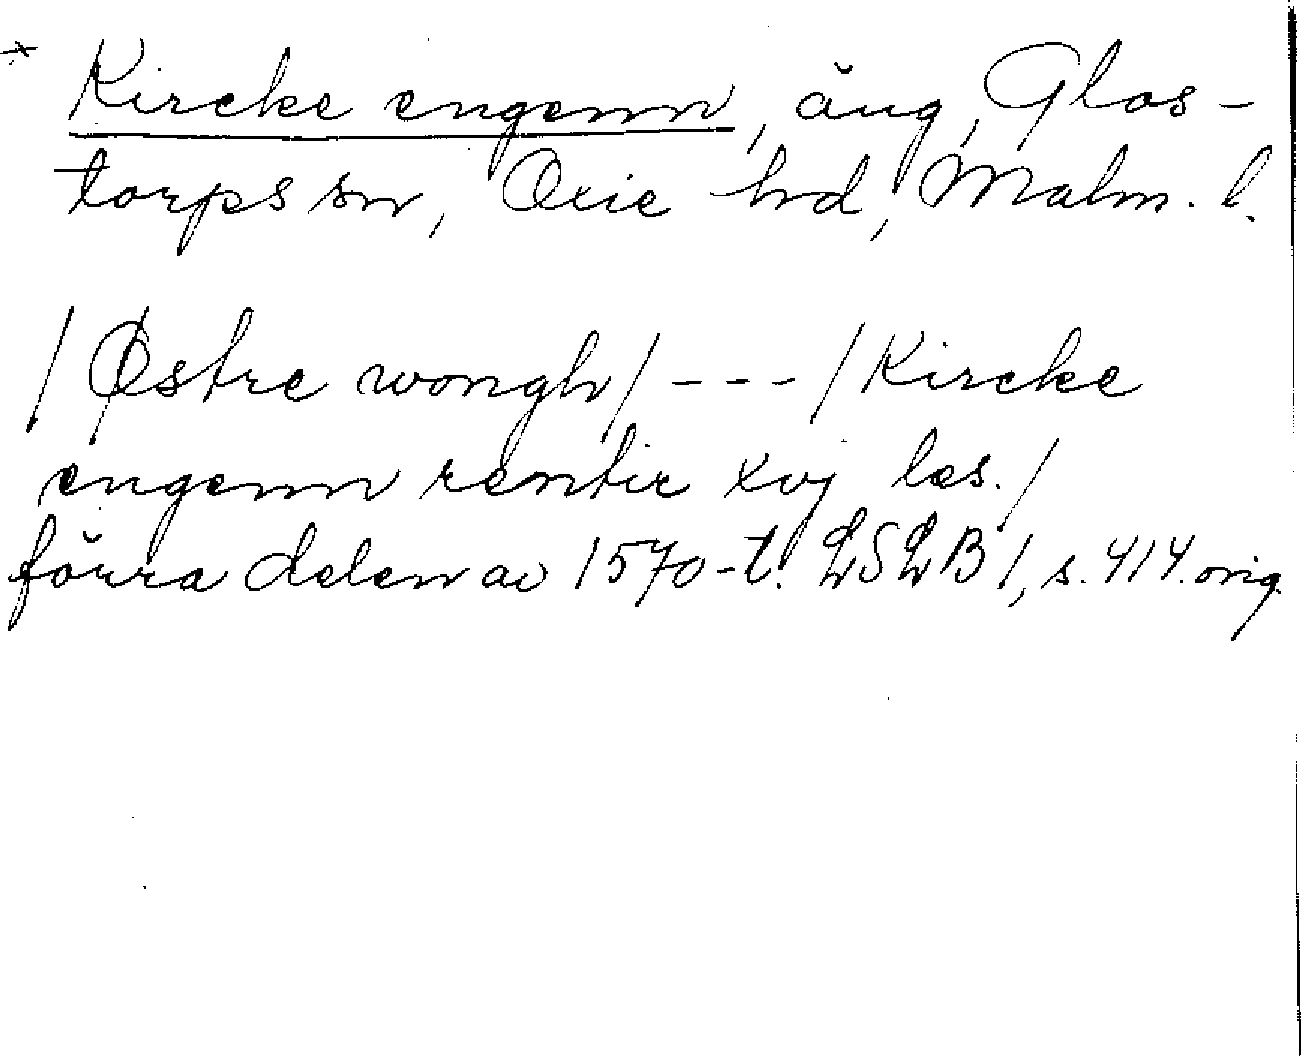 * Kircke engenn, äng, Glos-
torps sn, Oxie hd, Malm. l.
/Østre wongh/ --- /Kircke
engenn rentir xvj læs./
förra delen av 1570-t. LSLB 1, s. 414. orig.